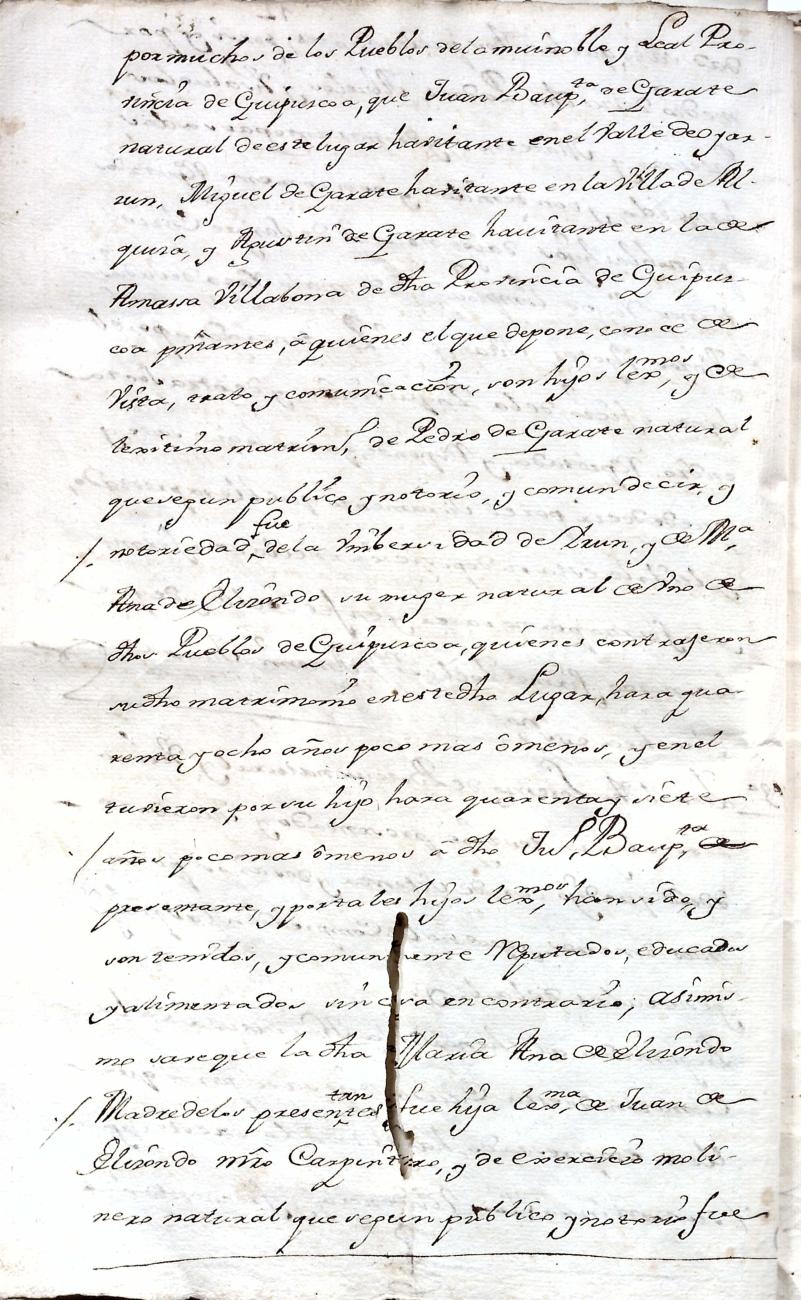 por muchos de los Pueblos dela mui noble y Leal Pro-
vincia de Guipuscoa, que Juan Baup,ta de Garate
natural de este lugar havitante en el Valle de Oyar-
zun, Miguel de Garate havitante en la Villa de Al-
quiza, y Agustin de Garate havitante en la de
Amassa Villabona de dha Provincia de Guipuz-
coa pñtantes, â quienes el que depone, conoce de
Vista, trato y comunicacion, son hijos lex,mos y de
lexitimo matrim,l de Pedro de Garate natural
que segun publico y notorio, y comun decir, y
/. notoriedad, fue de la Vnibersidad de Irun, y de M,a
Ana de Elizondo su muger natural de Vno de
dhos Pueblos de Guipuscoa, quienes contrageron
su dho matrimonio en este dho Lugar, hara qua-
renta y ocho años poco mas ômenos, y en el
tuvieron por su hijo, hara quarenta y siete
/ años poco mas ômenos â dho Ju,n Baup,ta de
presentante, y por tales hijos lex,mos han sido, y
son tenidos, y comunmente Reputados, educados
y alimentados sin cosa en contrario; asimis-
mo save que la dha Maria Ana de Elizondo
/. Madre de los presentantes, fue hija lex,ma de Juan de
Elizondo mro Carpintero, y de exercicio moli-
nero natural que segun publico y notorio fue